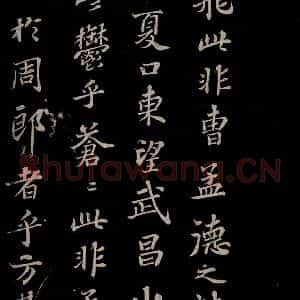 飛此非曹孟德之
夏口東望武昌山
鬱乎蒼〻此非孟
於周郎者乎方其
Shufawang.CN